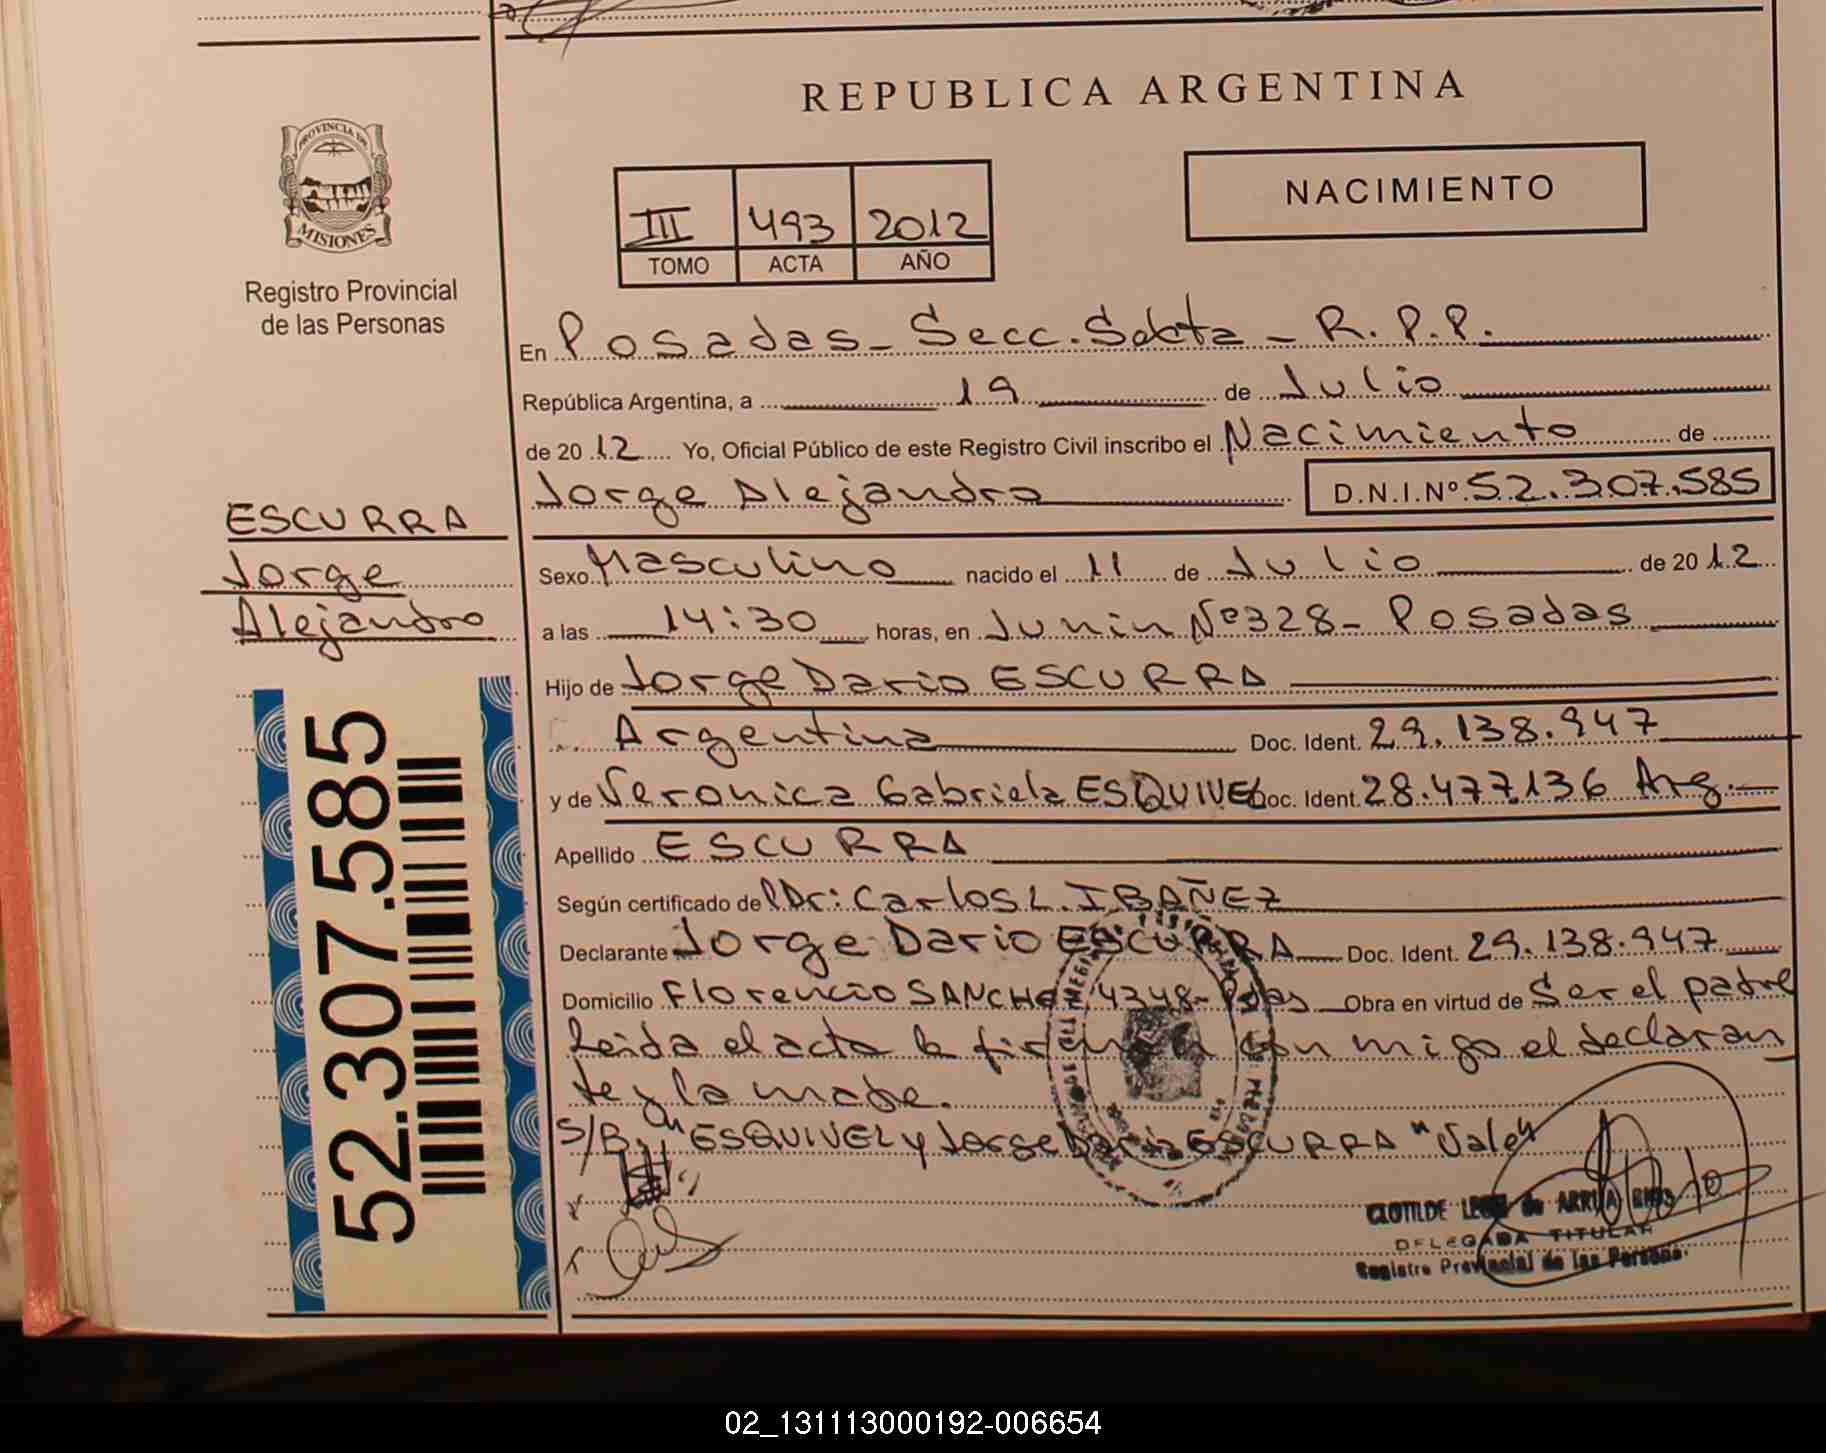 REPUBLICA ARGENTINA
PROVINCIA DE
MISIONES
Registro Provincial
de las Personas
III 493 2012
TOMO ACTA AÑO
NACIMIENTO
En Posadas - Secc. Sexta - R.P.P.
República Argentina, a 19 de Julio
de 2012 Yo, Oficial Público de este Registro Civil inscribo el Nacimiento de
Jorge Alejandro D.N.I.Nº 52.307.585
ESCURRA
Jorge
Alejandro
Sexo Masculino nacido el 11 de Julio de 2012
a las 14:30 horas, en Junin Nº 328 - Posadas
Hijo de Jorge Dario ESCURRA
Argentina Doc. Ident. 29.138.947
y de Veronica Gabriela ESQUIVEL Doc. Ident. 28.477.136 Arg.
Apellido ESCURRA
Según certificado del Dr: Carlos L. IBAÑEZ
Declarante Jorge Dario ESCURRA Doc. Ident. 29.138.947
Domicilio Florencio SANCHEZ 4348 - Pdas Obra en virtud de Ser el padre
Leida el acta la firman con migo el declaran
te y la madre.
S/B "ESQUIVEL y Jorge Dario ESCURRA "Vale"
52.307.585
CLOTILDE de ARRUA RIOS
DELEGADA TITULAR
Registro Provincial de las Personas
02_131113000192-006654